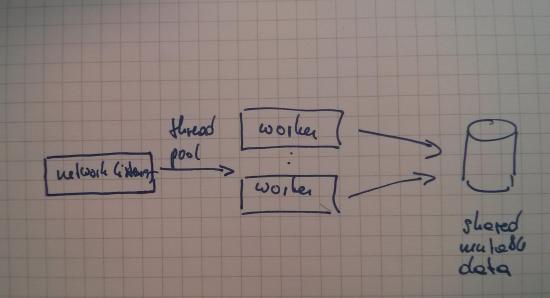 network listener
thread
pool
worker
worker
shared
mutable
data